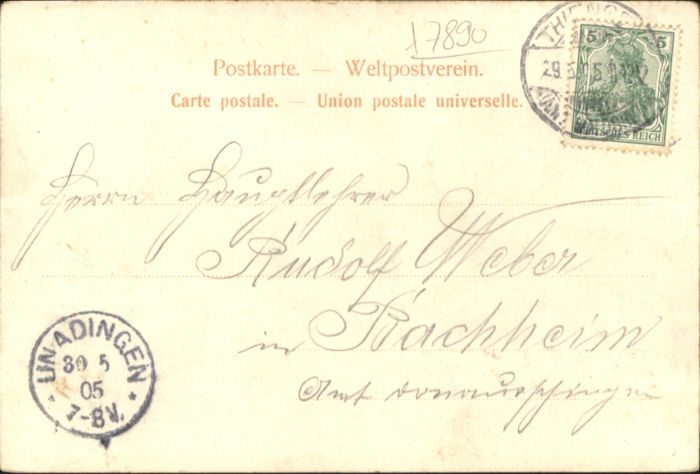 17890
Postkarte. — Weltpostverein.
Carte postale. — Union postale universelle.
5 5
REICH
Herrn Hauptlehrer
Rudolf Weber
in Bachheim
Amt Donaueschingen
UNADINGEN
30 5
05
7-8V.